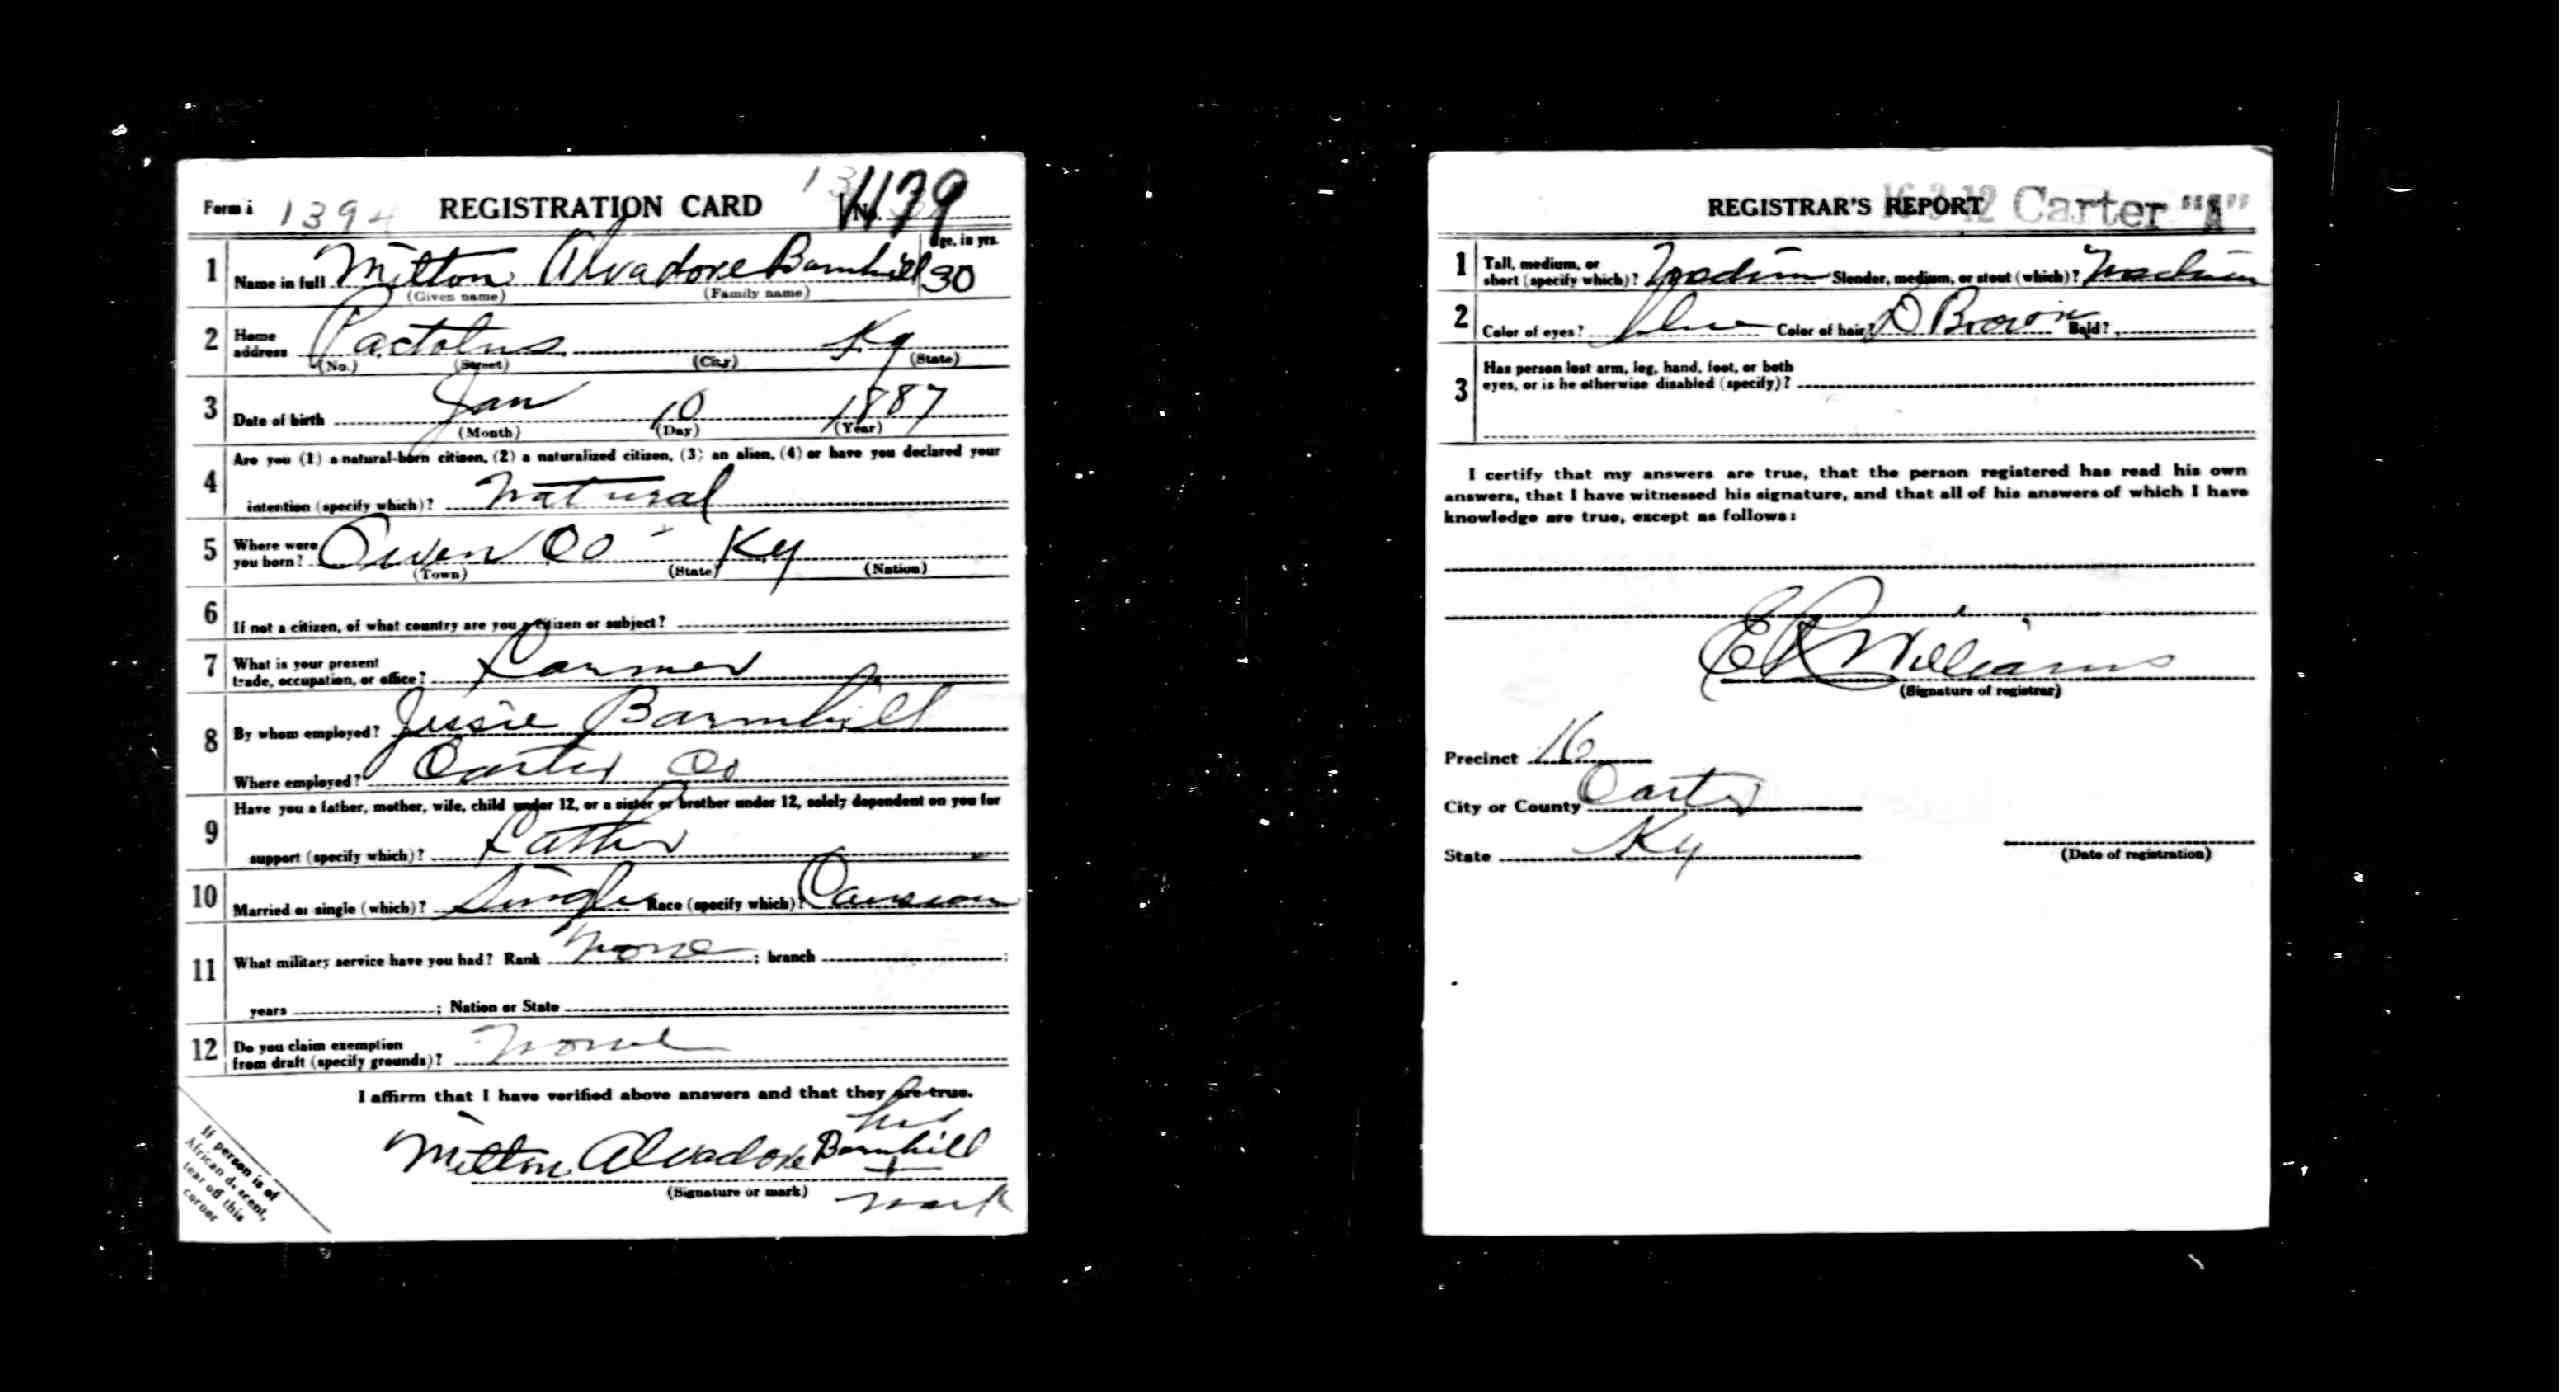 Form 1 1394 REGISTRATION CARD No. 1179
Age, in yrs.
1 Name in full Milton Alvadore Barnhill 30
(Given name) (Family name)
2 Home address Pactolus Ky
(No.) (Street) (City) (State)
3 Date of birth Jan 10 1887
(Month) (Day) (Year)
4 Are you (1) a natural-born citizen, (2) a naturalized citizen, (3) an alien, (4) or have you declared your
intention (specify which)? Natural
5 Where were you born? Owen Co - Ky
(Town) (State) (Nation)
6 If not a citizen, of what country are you a citizen or subject?
7 What is your present
trade, occupation, or office? Farmer
8 By whom employed? Jessie Barnhill
Where employed? Carter Co
9 Have you a father, mother, wife, child under 12, or a sister or brother under 12, solely dependent on you for
support (specify which)? Father
10 Married or single (which)? Single Race (specify which)?
11 What military service have you had? Rank None ; branch ;
years ; Nation or State
12 Do you claim exemption
from draft (specify grounds)? None
I affirm that I have verified above answers and that they are true.
his
Milton Alvadore Barnhill
+
(Signature or mark) mark
If person is of
African descent,
tear off this
corner
REGISTRAR'S REPORT 16-3-12 Carter "A"
1 Tall, medium, or
short (specify which)? Medium Slender, medium, or stout (which)? Medium
2 Color of eyes? Blue Color of hair? D Brown Bald?
3 Has person lost arm, leg, hand, foot, or both
eyes, or is he otherwise disabled (specify)?
I certify that my answers are true, that the person registered has read his own
answers, that I have witnessed his signature, and that all of his answers of which I have
knowledge are true, except as follows:
E R Williams
(Signature of registrar)
Precinct 16
City or County Carter
State Ky
(Date of registration)